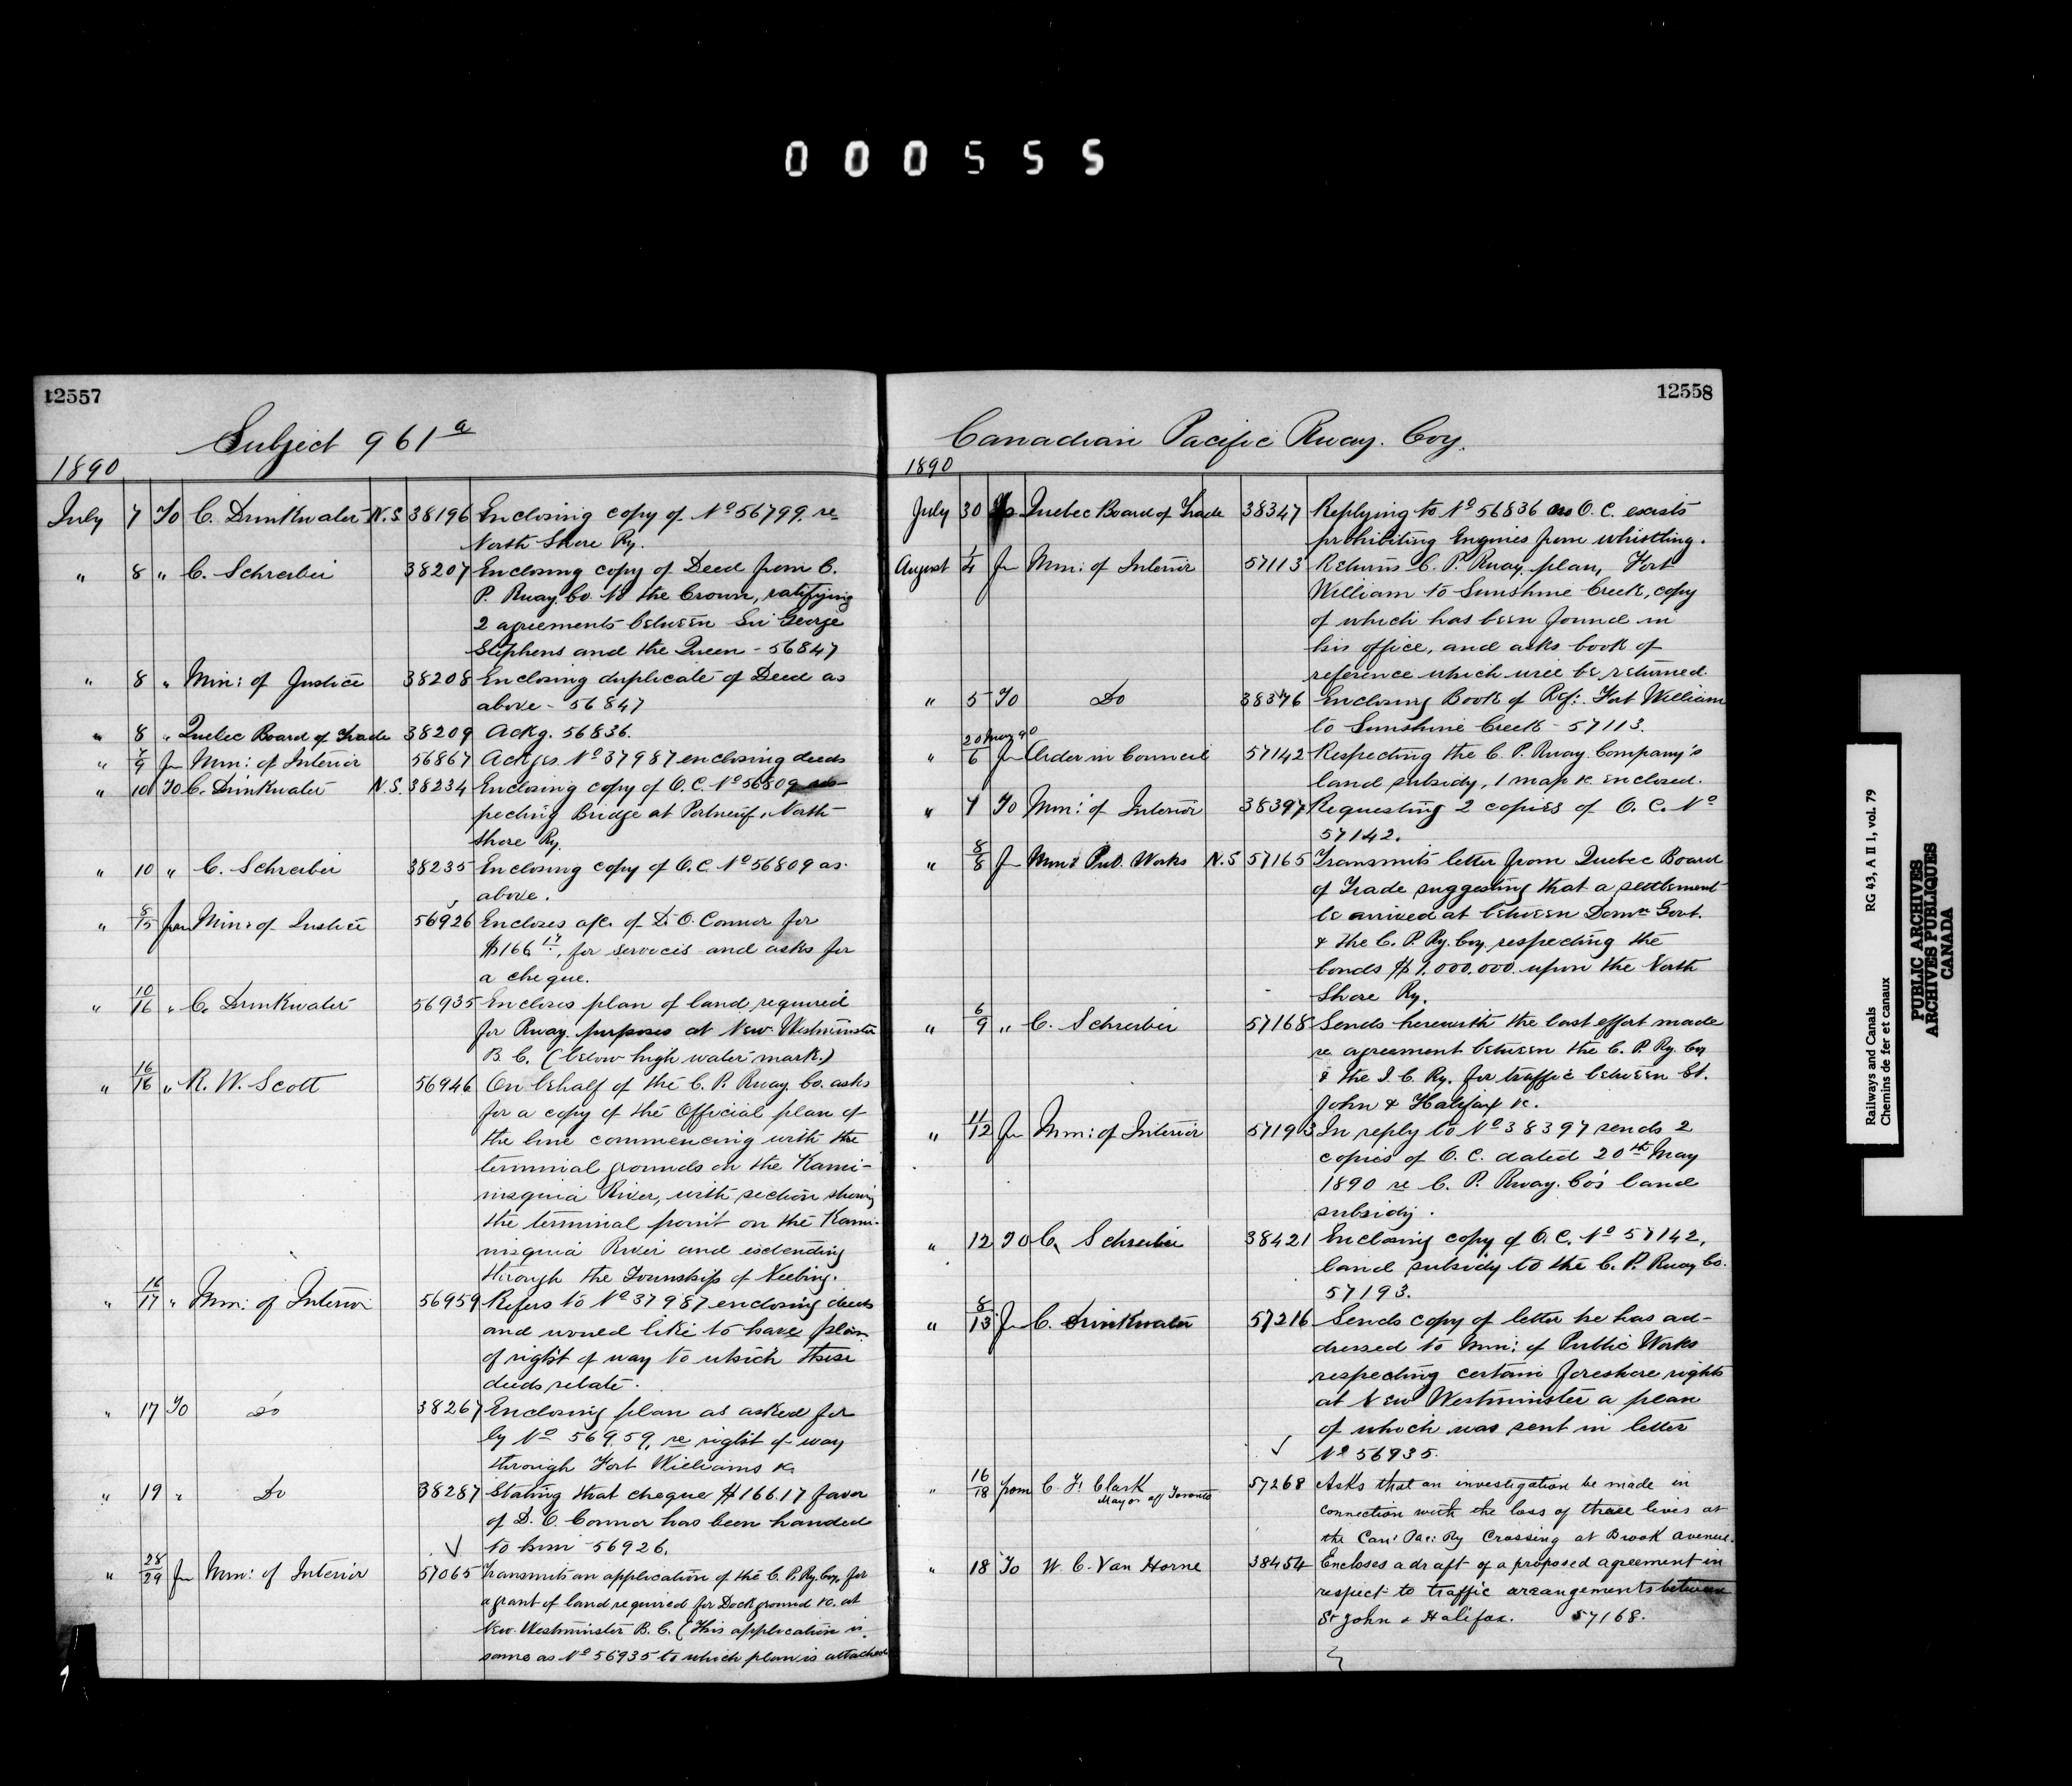 000555
12557
Subject 961a
1890
July 7 To C. Drinkwater N.S. 38196 Enclosing copy of No 56799. re
North Shore Ry.
" 8 " C. Schreiber 38207 Enclosing copy of Deed from C.
P. Rway. Co. to the Crown, ratifying
2 agreements between Sir George
Stephens and the Queen - 56847
" 8 " Min: of Justice 38208 Enclosing duplicate of Deed as
above - 56847
" 8 " Quebec Board of Trade 38209 Ackg. 56836.
" 7/9 Fm Min: of Interior 56867 Ackges No 37987 enclosing deeds
" 10 To C. Drinkwater N.S. 38234 Enclosing copy of O.C. No 56809 res-
pecting Bridge at Portneuf, North
Shore Ry.
" 10 " C. Schreiber 38235 Enclosing copy of O.C. No 56809 as
above.
" 8/15 from Min: of Justice 56926 Encloses a/c. of D. O. Connor for
$166 17, for services and asks for
a cheque.
" 10/16 " C. Drinkwater 56935 Encloses plan of land required
for Rway. purposes at New Westminster
B. C. (below high water mark.)
" 16/16 " R. W. Scott 56946 On behalf of the C. P. Rway. Co. asks
for a copy of the Official plan of
the line commencing with the
terminal grounds on the Kami-
nisquia River, with section showing
the terminal point on the Kami-
nisquia River and extending
through the Township of Neebing.
" 16/17 " Min: of Interior 56959 Refers to No 37987 enclosing deeds
and would like to have plan
of right of way to which these
deeds relate.
" 17 To Do 38267 Enclosing plan as asked for
by No 56959, re right of way
through Fort Williams &c.
" 19 " Do 38287 Stating that cheque $166.17 favor
of D. O. Connor has been handed
to him - 56926.
" 28/29 Fm Min: of Interior 57065 Transmits an application of the C. P. Ry. Coy. for
a grant of land required for Dock ground &c. at
New Westminster B. C. (This application is
same as No 56935 to which plan is attached
12558
Canadian Pacific Rway. Coy.
1890
July 30 To Quebec Board of Trade 38347 Replying to No 56836 no O. C. exists
prohibiting Engines from whistling.
August 1/4 Fm Min: of Interior 57113 Returns C. P. Rway. plan, Fort
William to Sunshine Creek, copy
of which has been found in
his office, and asks book of
reference which will be returned.
" 5 To Do 38376 Enclosing Book of Ref: Fort William
to Sunshine Creek - 57113.
" 20 May 90/6 Fm Order in Council 57142 Respecting the C. P. Rway. Company's
land subsidy, 1 map &c. enclosed.
" 7 To Min: of Interior 38397 Requesting 2 copies of O. C. No
57142.
" 8/8 Fm Min: Pub. Works N.S 57165 Transmits letter from Quebec Board
of Trade suggesting that a settlement
be arrived at between Domn Govt.
& the C. P. Ry. Coy. respecting the
bonds $1,000,000 upon the North
Shore Ry.
" 6/9 " C. Schreiber 57168 Sends herewith the last effort made
re agreement between the C. P. Ry. Coy
& the I. C. Ry. for traffic between St.
John & Halifax &c.
" 11/12 Fm Min: of Interior 57193 In reply to No 38397 sends 2
copies of O. C. dated 20th May
1890 re C. P. Rway. Co's land
subsidy.
" 12 To C. Schreiber 38421 Enclosing copy of O. C. No 57142,
land subsidy to the C. P. Rway Co.
57193.
" 8/13 Fm C. Drinkwater 57216 Sends copy of letter he has ad-
dressed to Min: of Public Works
respecting certain foreshore rights
at New Westminster a plan
of which was sent in letter
No 56935.
" 16/18 from C. F. Clark 57268 Asks that an investigation be made in
Mayor of Toronto
connection with the loss of three lives at
the Can: Pac: Ry Crossing at Brook avenue.
" 18 To W. C. Van Horne 38454 Encloses a draft of a proposed agreement in
respect to traffic arrangements between
St John & Halifax. 57168.
Railways and Canals
Chemins de fer et canaux
RG 43, A II 1, vol. 79
PUBLIC ARCHIVES
ARCHIVES PUBLIQUES
CANADA